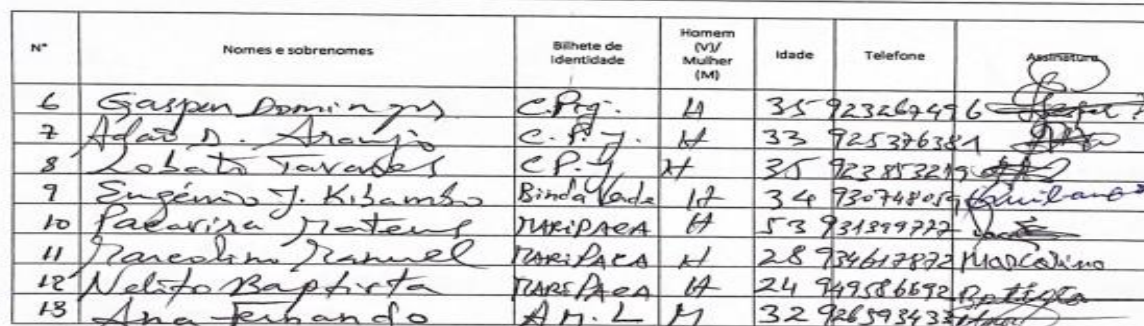 Nº Nomes e sobrenomes Bilhete de Identidade Homem (V)/ Mulher (M) Idade Telefone Assinatura
6 Gaspar Domingos C.Prg. H 35 923267496
7 Adão D. Araujo C.P.J. H 33 925376381
8 Lobato Tavares C.P.J H 35 923853219
9 Eugénio J. Kibambo Binda H 34 930748059
10 Pacavira Mateus MARIPACA H 53 931399777
11 Marcolino Manuel MARIPACA H 28 934617872 Marcolino
12 Nelito Baptista MARIPACA H 24 949586692 Baptista
13 Ana Fernando A M. L M 32 926593433 Ana